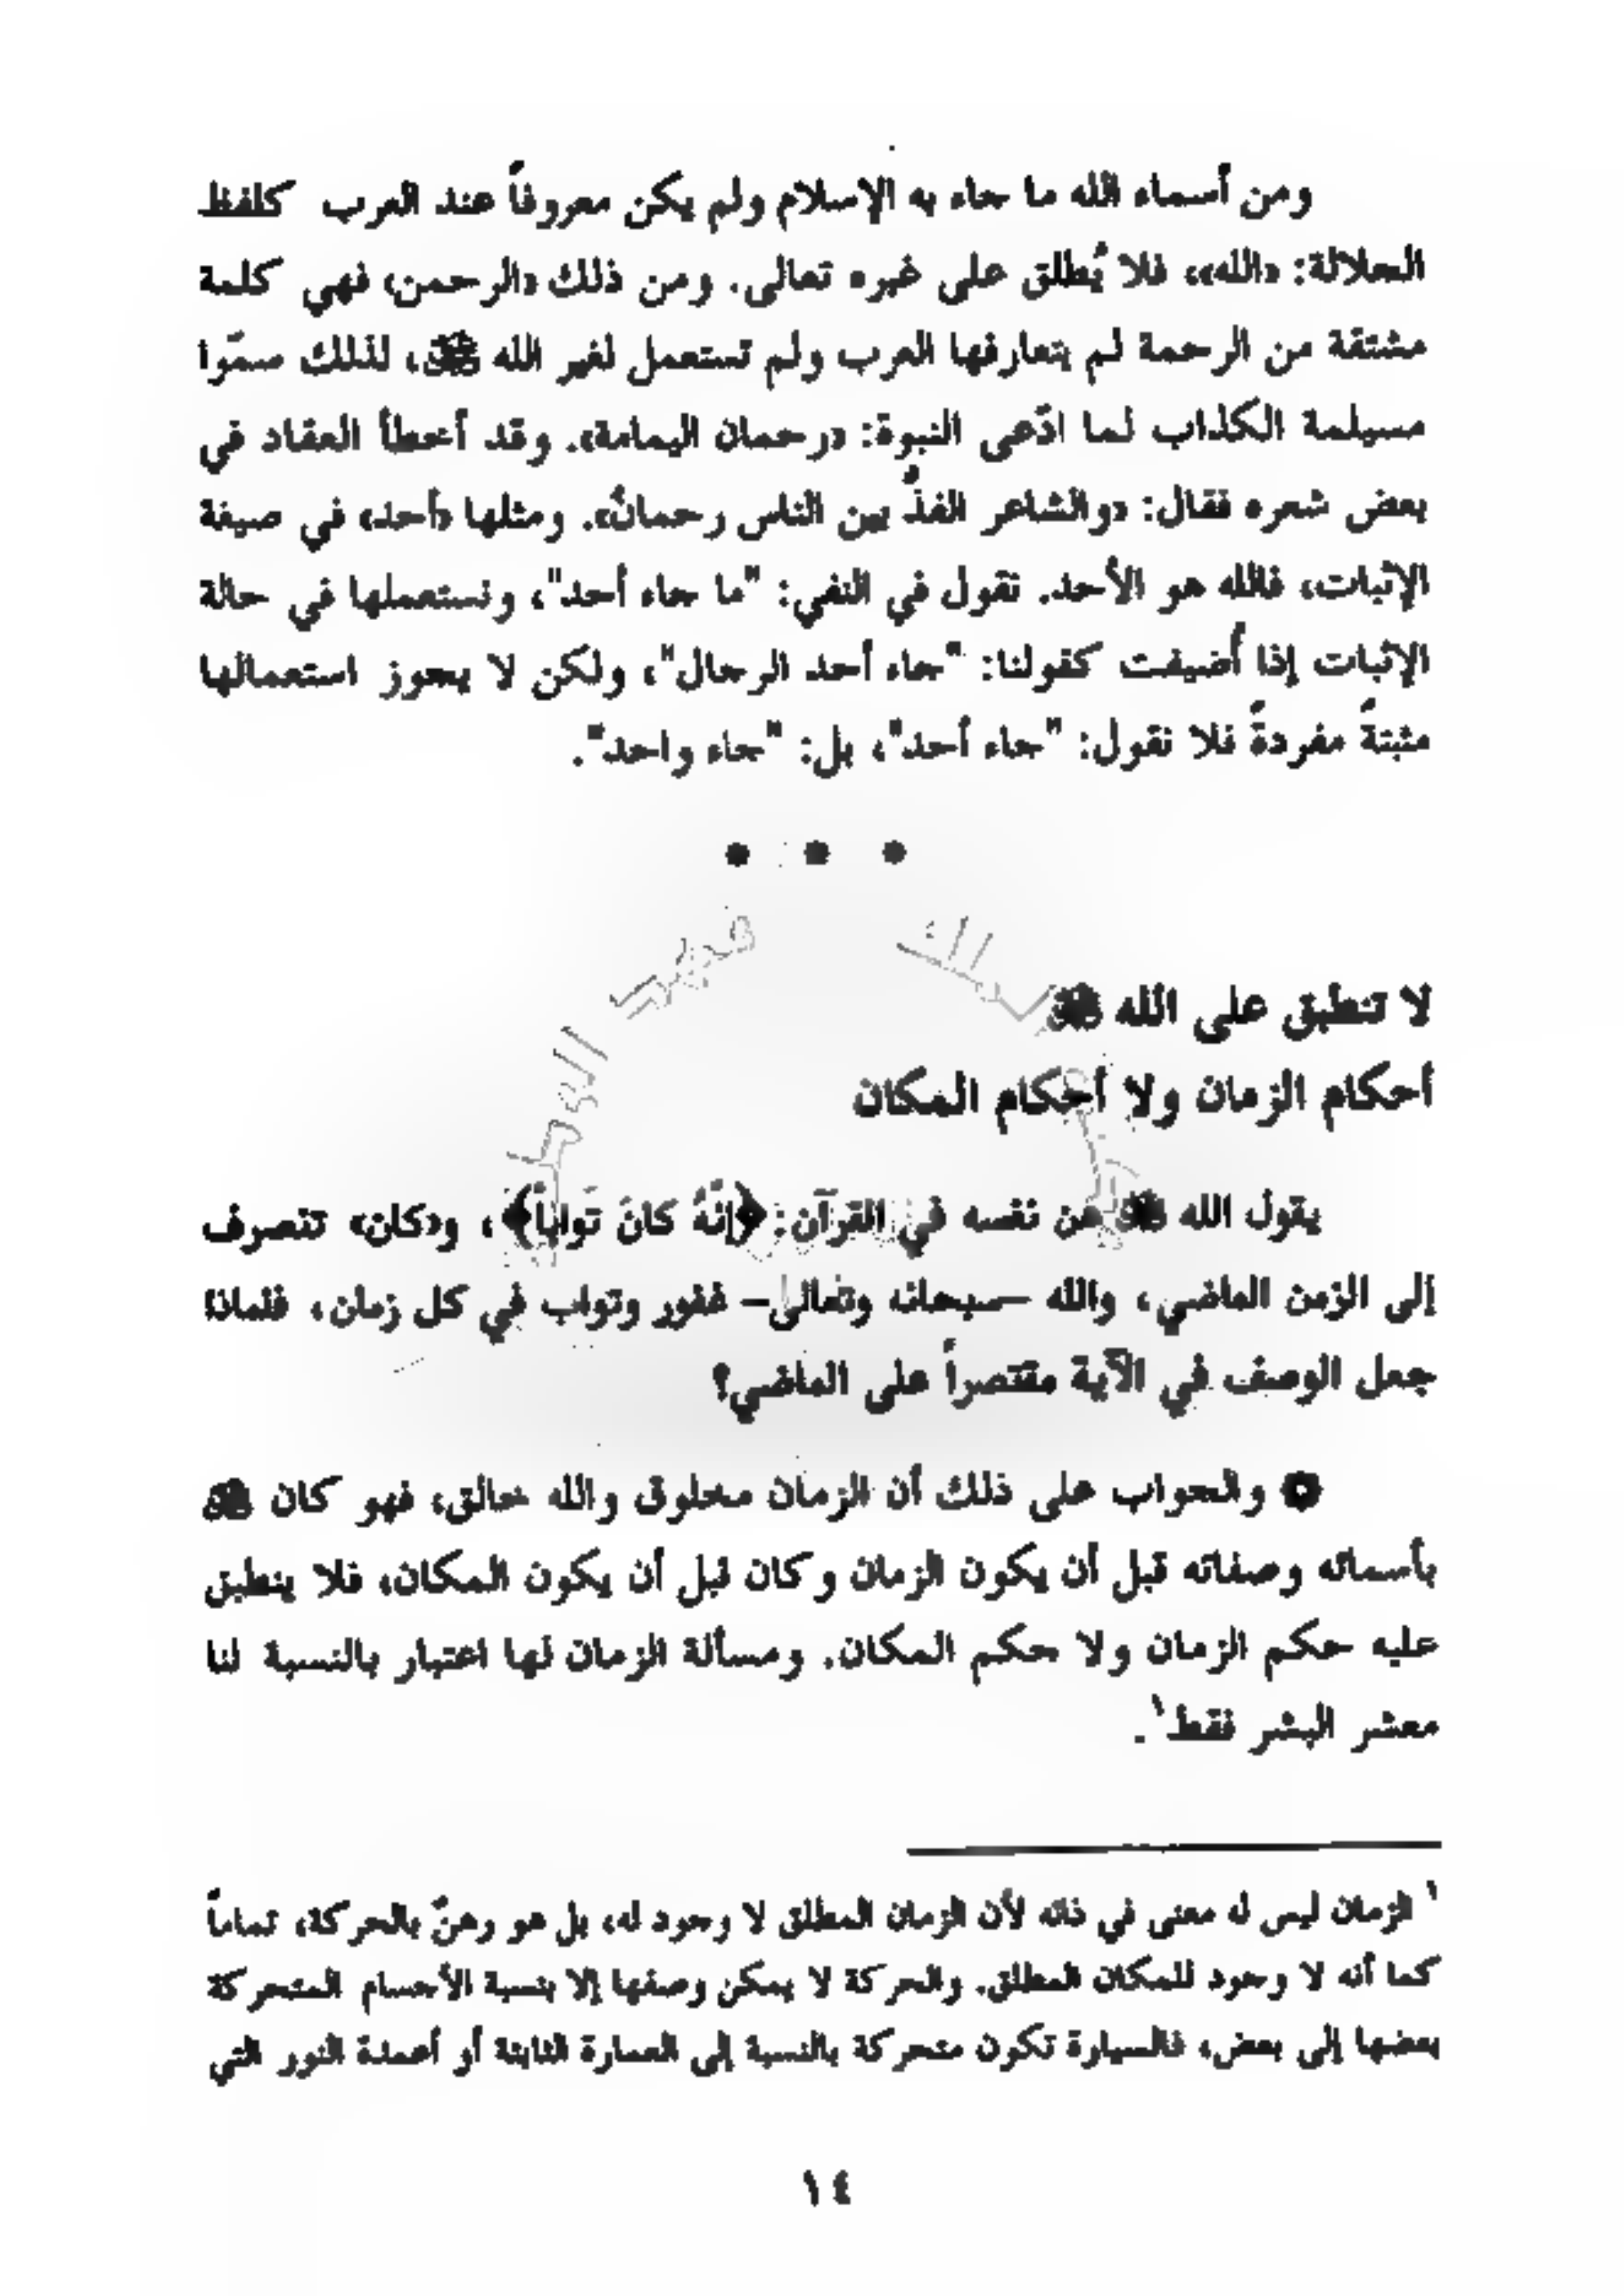 ومن أسماء الله ما جاء به الإسلام ولم يكن معروفاً عند العرب كلفظ
الجلالة: «الله»، فلا يُطلق على غيره تعالى. ومن ذلك «الرحمن» فهي كلمة
مشتقة من الرحمة لم يتعارفها العرب ولم تستعمل لغير الله ﷻ، لذلك سمّوا
مسيلمة الكذاب لما ادّعى النبوة: «رحمان اليمامة». وقد أخطأ العقاد في
بعض شعره فقال: «والشاعر الفذّ بين الناس رحمانُ». ومثلها «أحد» في صيغة
الإثبات، فالله هو الأحد. نقول في النفي: "ما جاء أحد"، ونستعملها في حالة
الإثبات إذا أُضيفت كقولنا: "جاء أحد الرجال"، ولكن لا يجوز استعمالها
مثبتةً مفردةً فلا نقول: "جاء أحد"، بل: "جاء واحد".
• • •
لا تنطبق على الله ﷻ
أحكام الزمان ولا أحكام المكان
يقول الله ﷻ عن نفسه في القرآن: ﴿إنّهُ كانَ تَوّاباً﴾، و«كان» تتصرف
إلى الزمن الماضي، والله –سبحانه وتعالى– غفور وتواب في كل زمان، فلماذا
جعل الوصف في الآية مقتصراً على الماضي؟
والجواب على ذلك أن الزمان مخلوق والله خالق، فهو كان ﷻ
بأسمائه وصفاته قبل أن يكون الزمان وكان قبل أن يكون المكان، فلا ينطبق
عليه حكم الزمان ولا حكم المكان. ومسألة الزمان لها اعتبار بالنسبة لنا
معشر البشر فقط١.
١ الزمان ليس له معنى في ذاته لأن الزمان المطلق لا وجود له، بل هو رهنٌ بالحركة، تماماً
كما أنه لا وجود للمكان المطلق. والحركة لا يمكن وصفها إلا بنسبة الأجسام المتحركة
بعضها إلى بعض، فالسيارة تكون متحركة بالنسبة إلى العمارة الثابتة أو أعمدة النور التي
١٤